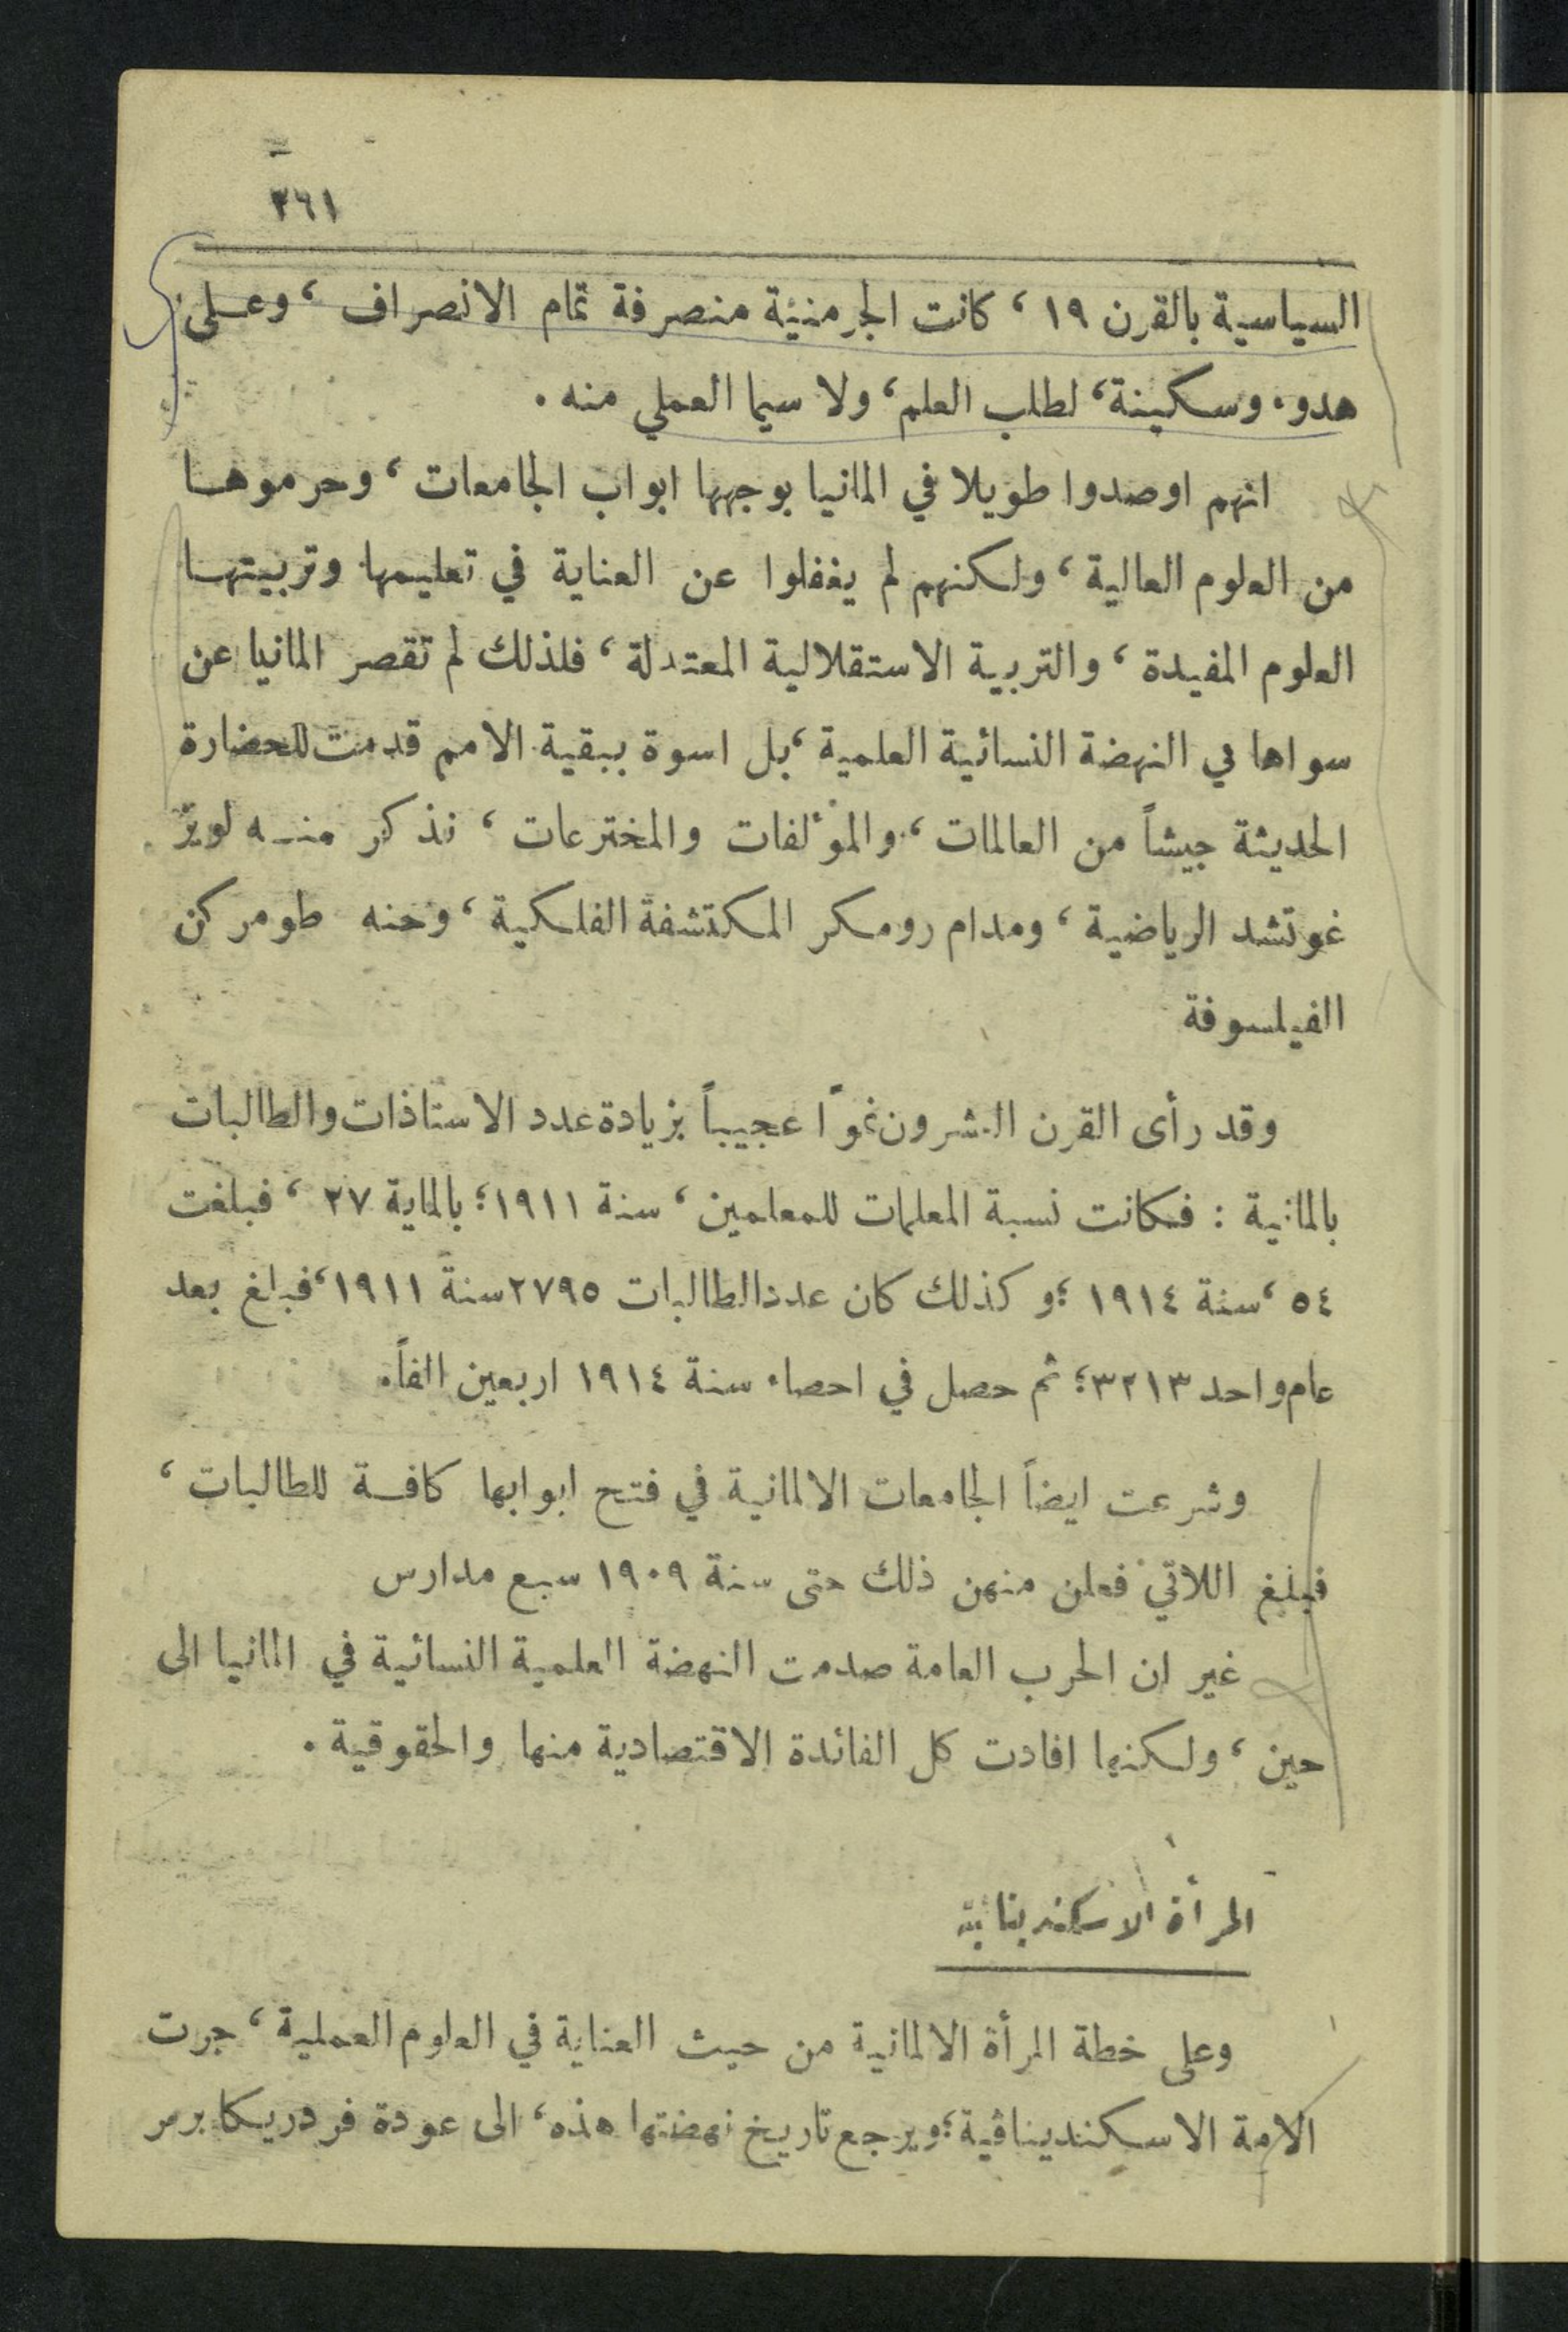 ٢٦١
السياسية بالقرن ١٩ ، كانت الجرمنية منصرفة تمام الانصراف ، وعلى
هدوء وسكينة، لطلب العلم، ولا سيما العملي منه .
انهم اوصدوا طويلا في المانيا بوجهها ابواب الجامعات ، وحرموها
من العلوم العالية ، ولكنهم لم يغفلوا عن العناية في تعليمها وتربيتها
العلوم المفيدة ، والتربية الاستقلالية المعتدلة ، فلذلك لم تقصر المانيا عن
سواها في النهضة النسائية العلمية ، بل اسوة ببقية الامم قدمت للحضارة
الحديثة جيشاً من العالمات ، والمؤلفات والمخترعات ، نذكر منه لويز
غوتشد الرياضية ، ومدام رومكر المكتشفة الفلكية ، وحنه طومركن
الفيلسوفة
وقد رأى القرن العشرون نموًا عجيباً بزيادة عدد الاستاذات والطالبات
بالمانية : فكانت نسبة المعلمات للمعلمين ، سنة ١٩١١ ؛ بالماية ٢٧ ، فبلغت
٥٤ ، سنة ١٩١٤ ؛ وكذلك كان عدد الطالبات ٢٧٩٥ سنة ١٩١١ ، فبلغ بعد
عام واحد ٣٢١٣ ؛ ثم حصل في احصاء سنة ١٩١٤ اربعين الفاً.
وشرعت ايضاً الجامعات الالمانية في فتح ابوابها كافة للطالبات ،
فبلغ اللاتي فعلن منهن ذلك حتى سنة ١٩٠٩ سبع مدارس
غير ان الحرب العامة صدمت النهضة العلمية النسائية في المانيا الى
حين ، ولكنها افادت كل الفائدة الاقتصادية منها والحقوقية .
المرأة الاسكندينافية
وعلى خطة المرأة الالمانية من حيث العناية في العلوم العملية ، جرت
الامة الاسكندينافية ؛ ويرجع تاريخ نهضتها هذه ، الى عودة فردريكا برمر